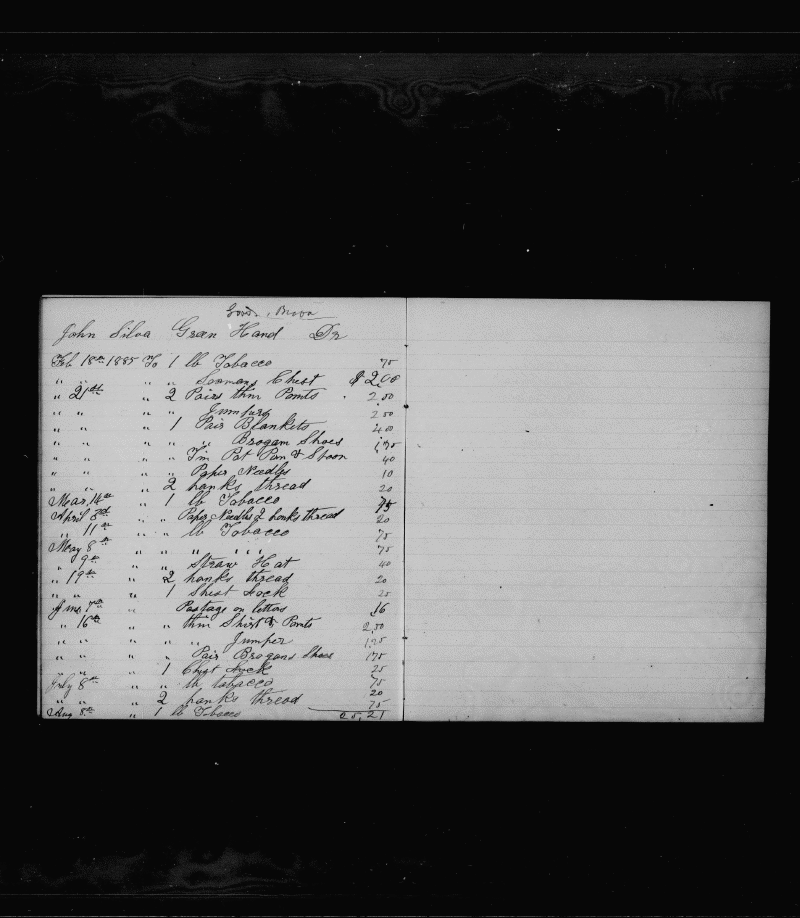 John Silva Green Hand Dr
Feb 18th 1885 To 1 lb Tobacco 75
" " " " Seamans Chest $ 2,00
" 21th " 2 Pairs thin Pants 2,00
" " " " Jumpers 2 00
" " " 1 Pair Blankets 4 00
" " " " " Brogam Shoes 1,75
" " " " Tin Pot Pan & Spoon 40
" " " " Paper Needles 10
" " " 2 hanks thread 20
Mear, 14th " 1 lb Tobacco 75
April 3rd " " Paper Needles 2 hanks thread 20
" 11th " " lb Tobacco 75
Meay 8th " " " " " " 75
" 9th " " Straw Hat 40
" 19th " 2 hanks thread 20
" " " 1 Shest Lock 25
June 7th " Postage on letters 16
" 16th " " thin Shirt & Pants 2,50
" " " " " Jumper 1,25
" " " " Pair Brogans Shoes 1 75
" " " 1 Chest Lock 25
July 8th " " lb tobacco 75
" " " 2 hanks thread 20
Aug 8th " 1 lb Tobacco 75
25,21